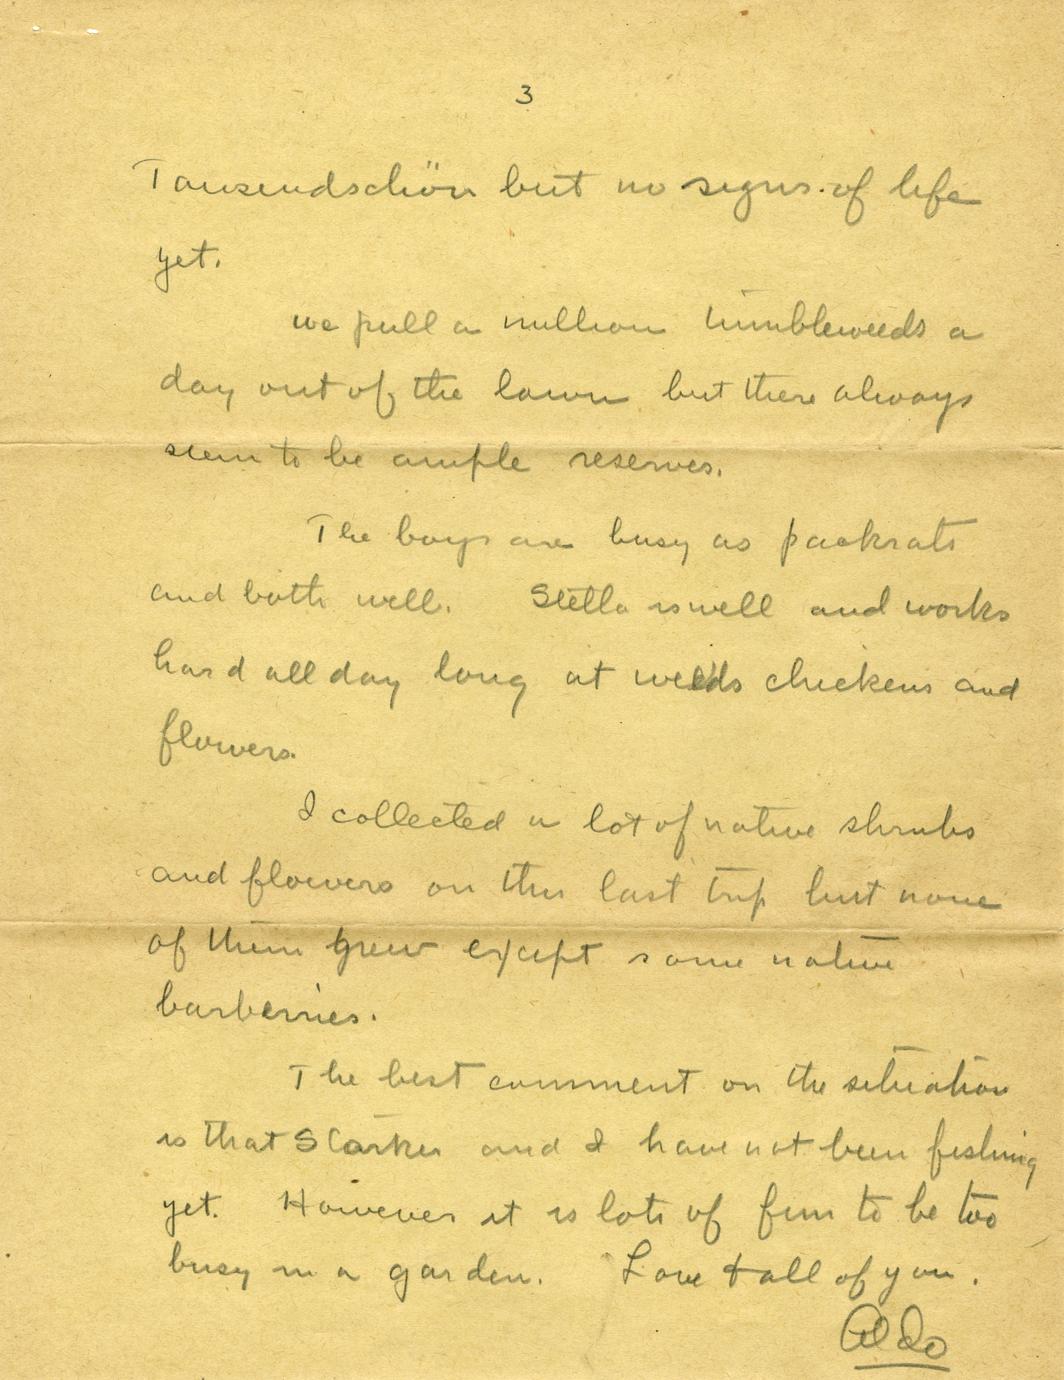 3
Tausendschön but no signs of life
yet.
we pull a million tumbleweeds a
day out of the lawn but there always
seem to be ample reserves.
The boys are busy as packrats
and both well. Stella is well and works
hard all day long at weeds chickens and
flowers.
I collected a lot of native shrubs
and flowers on this last trip but none
of them grew except some native
barberries.
The best comment on the situation
is that Starker and I have not been fishing
yet. However it is lots of fun to be too
busy in a garden. Love to all of you.
Aldo